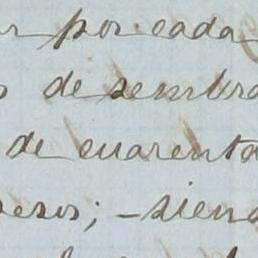 por cada
de sembra
de cuarenta
pesos; - siend